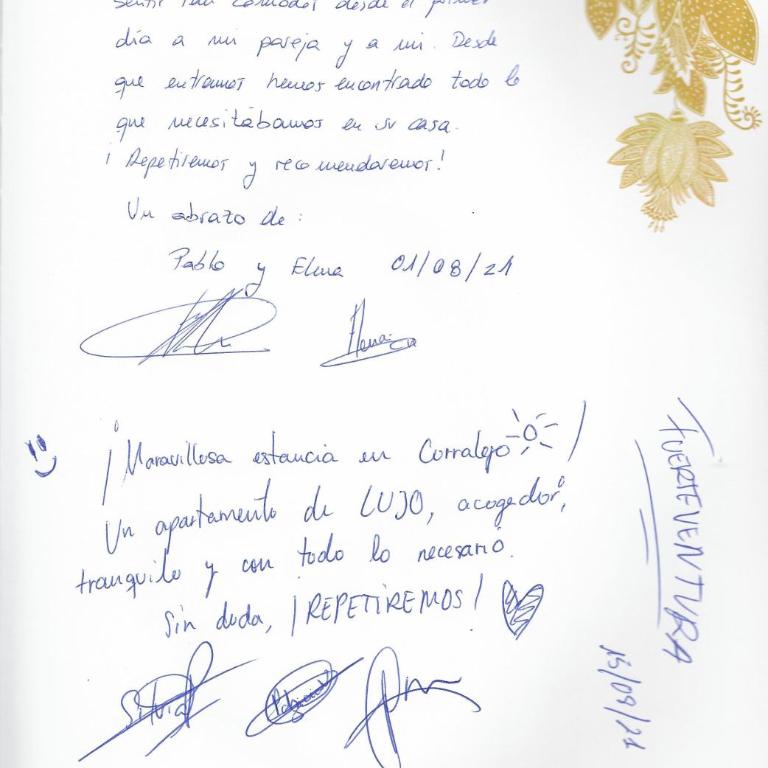 sentir tan cómodos desde el primer
día a mi pareja y a mi. Desde
que entramos hemos encontrado todo lo
que necesitábamos en su casa.
¡Repetiremos y recomendaremos!
Un abrazo de:
Pablo y Elena 01/08/21
Elena
¡Maravillosa estancia en Corralejo!
Un apartamento de LUJO, acogedor,
tranquilo y con todo lo necesario.
Sin duda, ¡REPETIREMOS!
Silvia
FUERTEVENTURA